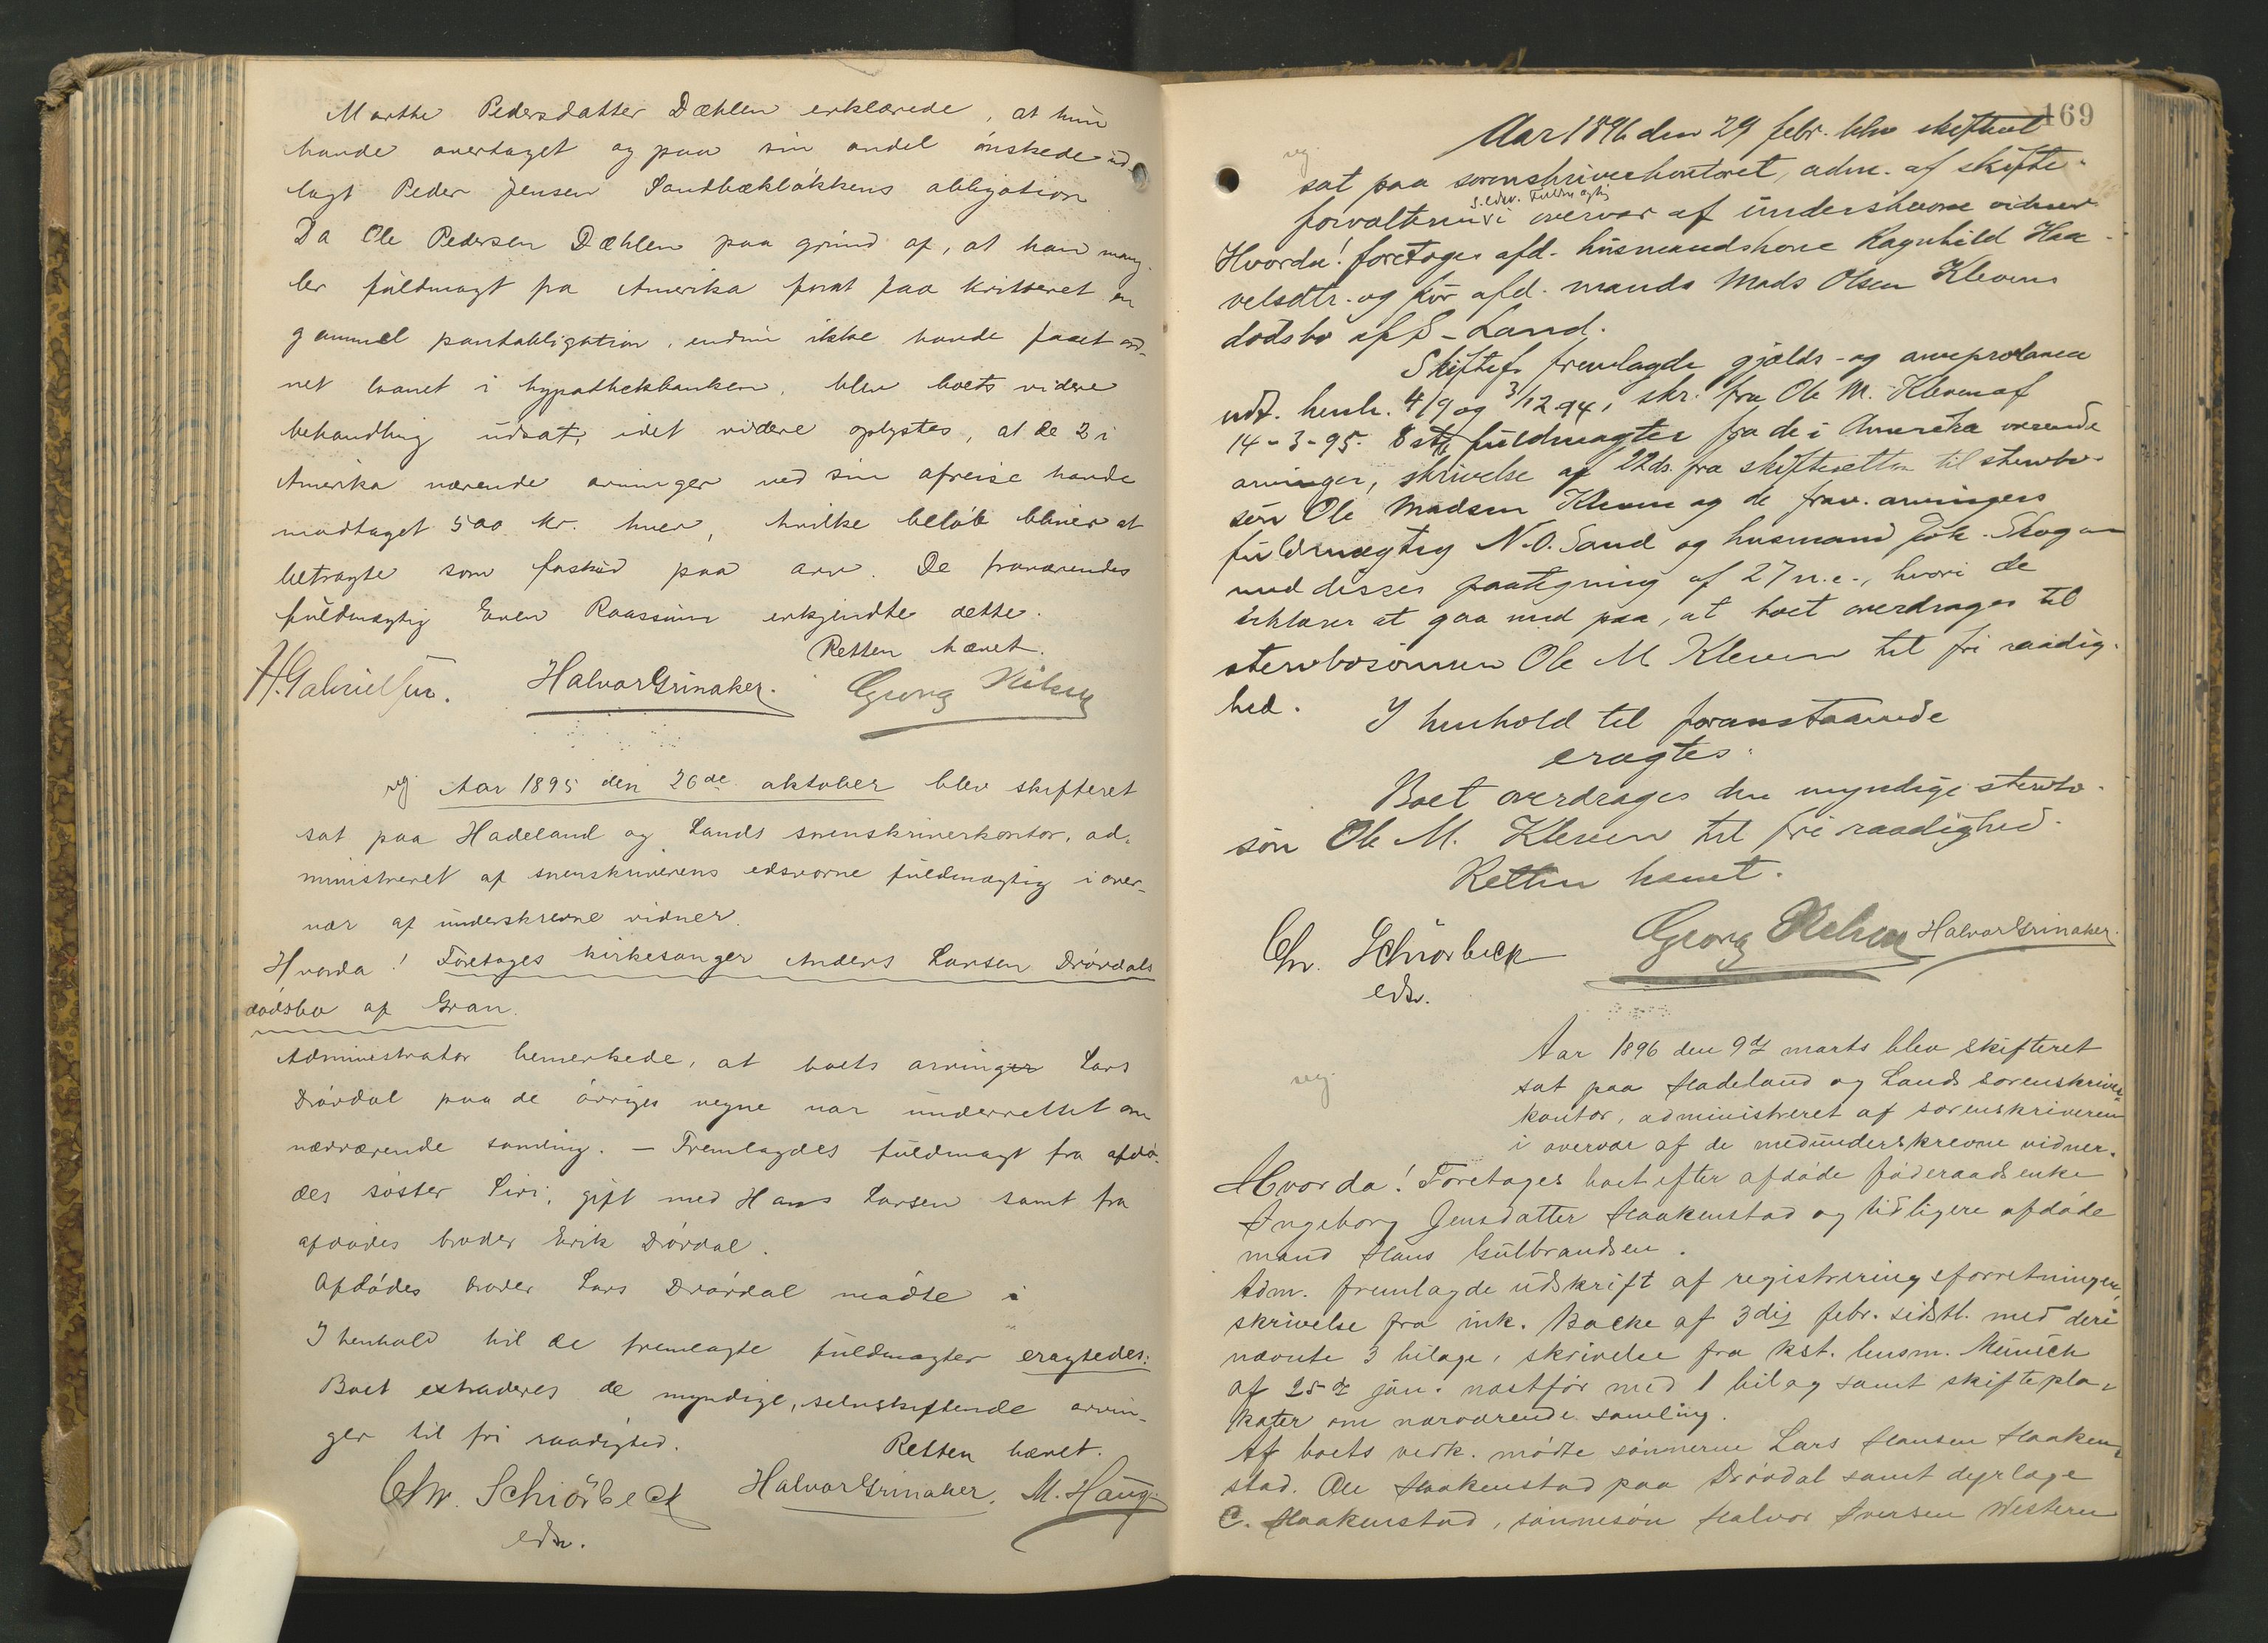 Marthe Pedersdatter Dæhlen erklærede, at hun
havde overtaget og paa sin andel ønskede ud-
lagt Peder Jensen Sandbækløkkens obligation
Da Ole Pedersen Dæhlen paa grund af, at han mang-
ler fuldmagt fra Amerika forat faa kvitteret en
gammel pantobligation, endnu ikke havde faaet ord-
net laanet i hypothekbanken, blev boets videre
behandling udsat, idet videre oplystes, at de 2 i
Amerika værende arvinger ved sin afreise havde
modtaget 500 kr. hver, hvilke beløb bliver at
betragte som forskud paa arv. De fraværendes
fuldmægtig Even Raassum erkjendte dette.
Retten hævet.
H. Gabrielsen. Halvor Grinaker. Georg Nilsen
Aar 1895 den 26de oktober blev skifteret
sat paa Hadeland og Lands sorenskriverkontor, ad-
ministreret af sorenskriverens edsvorne fuldmægtig i over-
vær af underskrevne vidner.
Hvorda! Foretages kirkesanger Anders Larsen Drøvdals
dødsbo af Gran.
Administrator bemerkede, at boets arvinger Lars
Drøvdal paa de øvriges vegne var underrettet om
nærværende samling. — Fremlagdes fuldmagt fra afdø-
des søster Siri, gift med Hans Larsen samt fra
afdødes broder Erik Drøvdal.
Afdødes broder Lars Drøvdal mødte i
I henhold til de fremlagte fuldmagter eragtedes:
Boet extraderes de myndige, selvskiftende arvin-
ger til fri raadighed.
Retten hævet.
Chr. Schiørbeck Halvor Grinaker. M. Haug.
edsv.
169
Aar 1896 den 29 febr. blev skifteret
sat paa sorenskriverkontoret, adm. af skifte-
s. edsv. Fuldmægtig
forvalteren i overvær af underskrevne vidner
Hvorda! foretoges afd. husmandskone Ragnhild Haa-
velsdtr. og før afd. mands Mads Olsen Klevens
dødsbo af S-Land.
Skiftef. fremlagde gjælds- og arveproklama
udf. henh. 4/9 og 3/12 94, skr. fra Ole M. Kleven af
14-3-95. 8 stk fuldmagter fra de i Amerika værende
arvinger, skrivelse af 22ds. fra skifteretten til stervbo-
søn Ole Madsen Kleven og de frav. arvingers
fuldmægtig N.O. Sand og husmand Joh. Skogen
med disses paategning af 27 n.e., hvori de
erklærer at gaa med paa, at boet overdrages til
stervbosønnen Ole M Kleven til fri raadig-
hed.
I henhold til foranstaaende
eragtes:
Boet overdrages den myndige stervbo-
søn Ole M. Kleven til fri raadighed.
Retten hævet.
Chr. Schiørbeck Georg Nilsen Halvor Grinaker.
edsv.
Aar 1896 den 9de marts blev skifteret
sat paa Hadeland og Lands sorenskriver-
kontor, administreret af sorenskriveren
i overvær af de medunderskrevne vidner.
Hvorda! Foretages boet efter afdøde føderaadsenke
Ingeborg Jensdatter Haakenstad og tidligere afdøde
mand Hans Gulbrandsen.
Adm. fremlagde udskrift af registreringsforretningen,
skrivelse fra ink. Backe af 3die febr. sidstl. med deri
nævnte 3 bilage, skrivelse fra kst. lensm. Munch
af 25de jan. næstfør med 1 bilag samt skiftepla-
kater om nærværende samling.
Af boets vedk. mødte sønnerne Lars Hansen Haaken-
stad. Ole Haakenstad paa Drøvdal samt dyrlæge
C. Haakenstad, sønnesøn Halvor Iversen Western